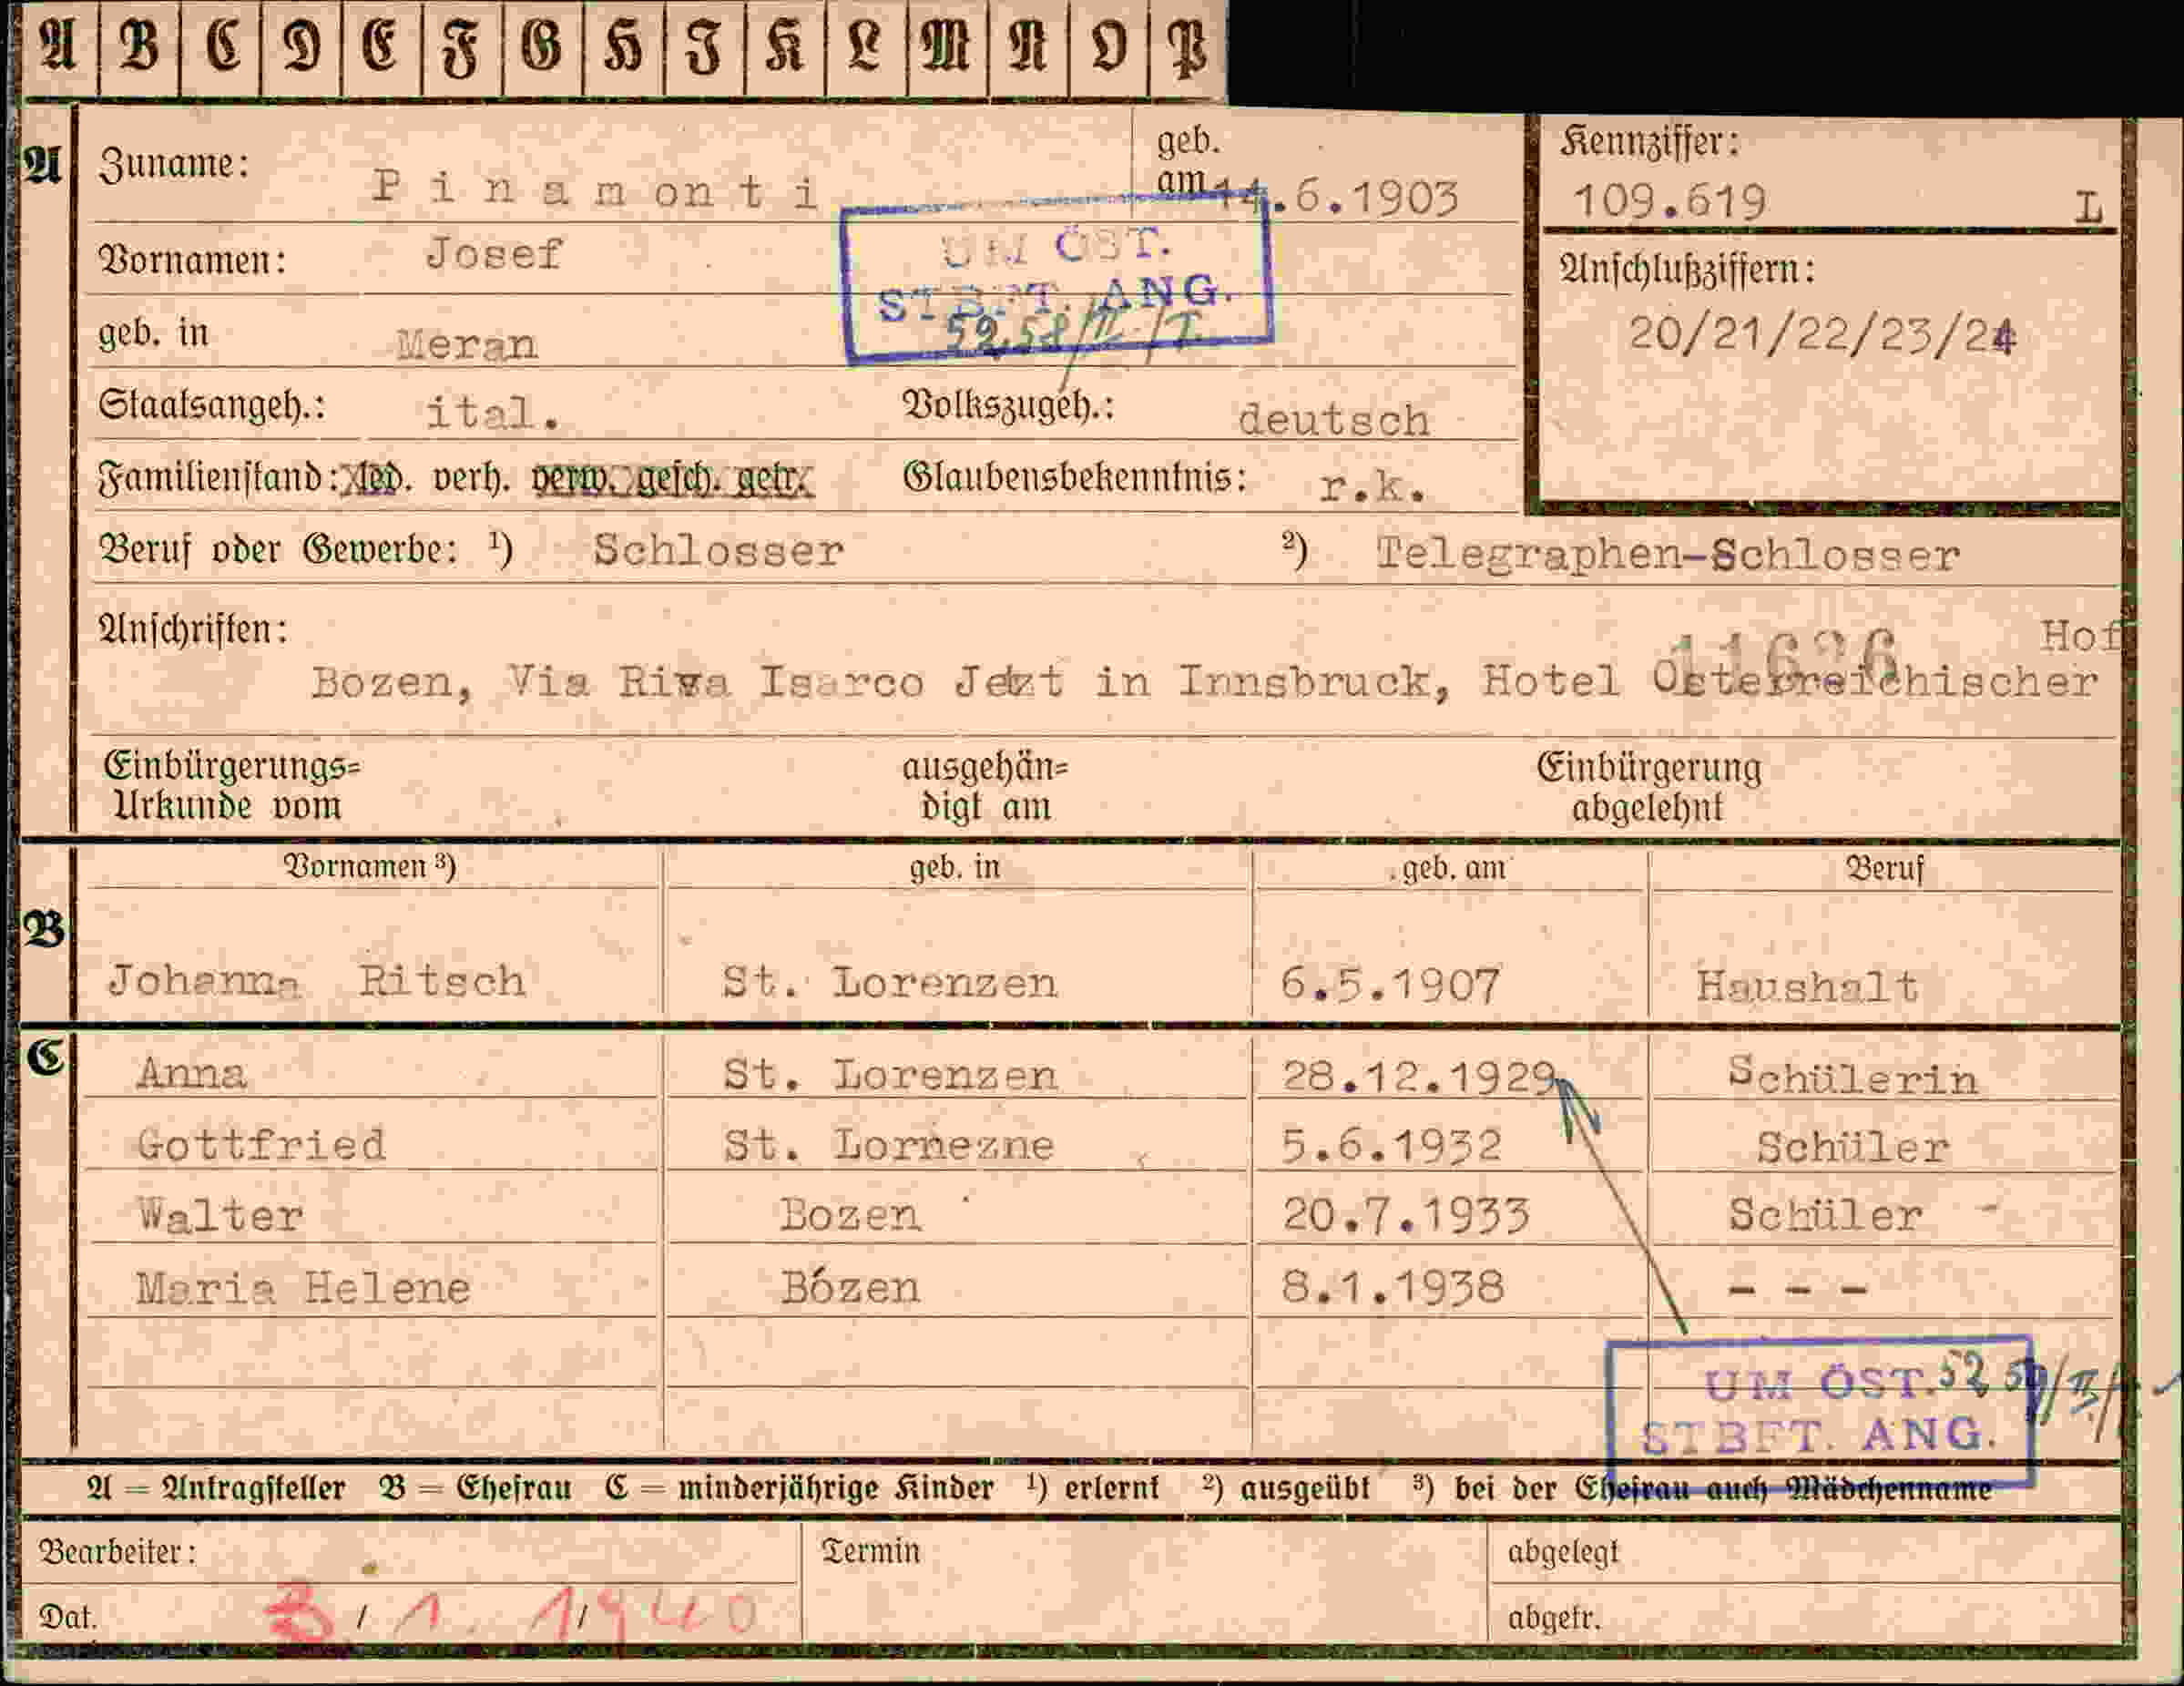 A B C D E F G H J K L M N O P
A
Zuname: Pinamonti
geb. am 14.6.1903
Kennziffer:
109.619 L
Vornamen: Josef
UM ÖST.
STBFT. ANG.
Anschlußziffern:
20/21/22/23/24
geb. in Meran
Staatsangeh.: ital. Volkszugeh.: deutsch
Familienstand: led. verh. verw. gesch. getr. Glaubensbekenntnis: r.k.
Beruf oder Gewerbe: ¹) Schlosser ²) Telegraphen-Schlosser
Anschriften: Hof
Bozen, Via Riva Isarco Jetzt in Innsbruck, Hotel Österreichischer
Einbürgerungs= ausgehän= Einbürgerung
Urkunde vom digt am abgelehnt
Vornamen ³) geb. in geb. am Beruf
B
Johanna Ritsch St. Lorenzen 6.5.1907 Haushalt
C
Anna St. Lorenzen 28.12.1929 Schülerin
Gottfried St. Lornezne 5.6.1932 Schüler
Walter Bozen 20.7.1933 Schüler
Maria Helene Bozen 8.1.1938 - - -
UM ÖST.
STBFT. ANG.
A = Antragsteller B = Ehefrau C = minderjährige Kinder ¹) erlernt ²) ausgeübt ³) bei der Ehefrau auch Mädchenname
Bearbeiter: Termin abgelegt
Dat. 3 / 1. 1/940 abgetr.